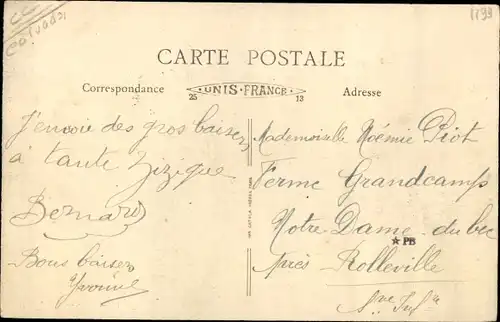 1193
CARTE POSTALE
Correspondance
UNIS-FRANCE
25 13
Adresse
J'envoie des gros baisers
à tante Zizique
Bernard
Bons baisers
Yvonne
Mademoiselle Noémie Piot
Ferme Grandcamp
Notre-Dame-du bec
★PB
Près Rolleville
Sne Infre